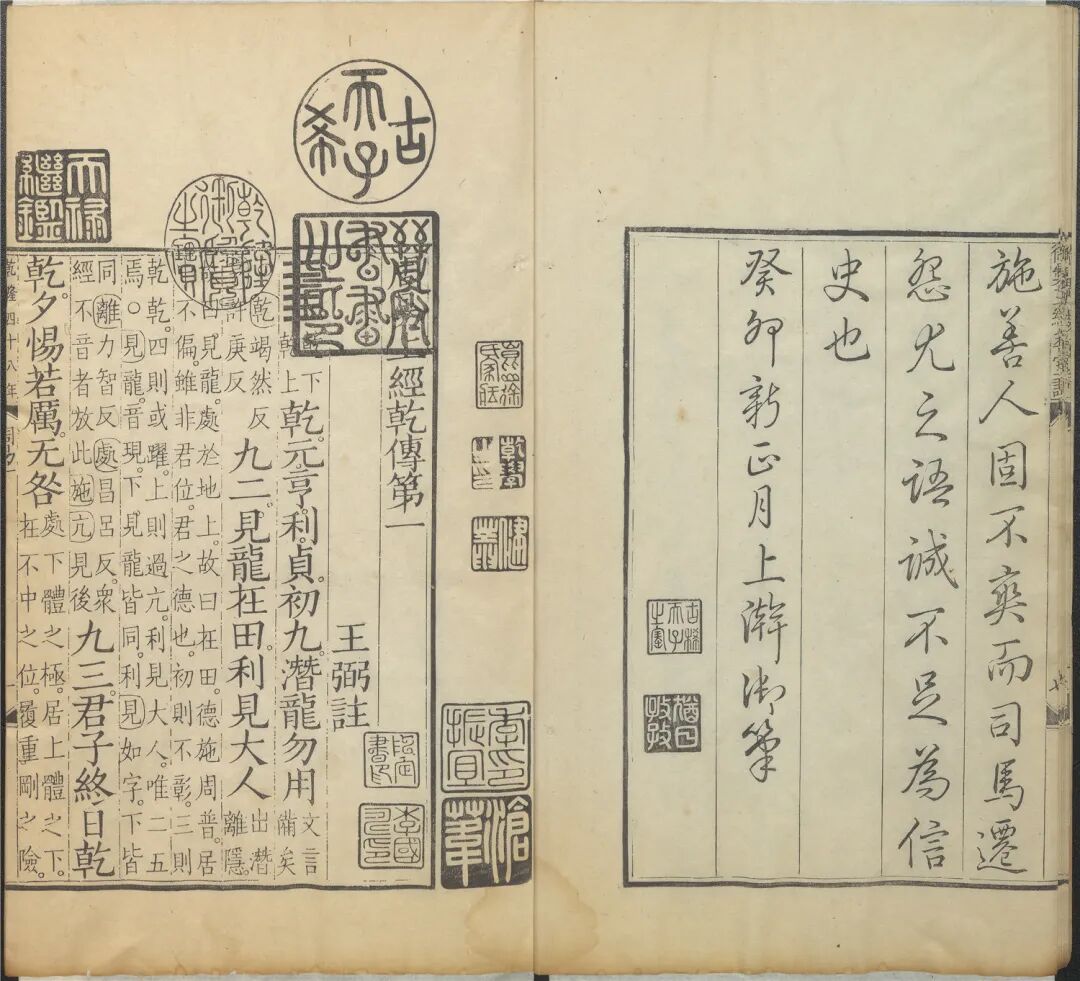 施善人固不爽而司馬遷
怨尤之語誠不足為信
史也
癸卯新正月上澣御筆
古稀天子之寶
猶日孜孜
古稀天子
乾隆御覽之寶
天祿繼鑑
崑山徐氏家藏
乾學之印
健菴
季振宜印
滄葦
上經乾傳第一
王弼註
乾下
乾上
乾。元。亨。利。貞。初九。潛龍勿用
文言
備矣
乾竭然反
許庚反
九二。見龍在田。利見大人
出潛
離隱。
曰見龍。處於地上。故曰在田。德施周普。居
不偏。雖非君位。君之德也。初則不彰。三則
乾乾。四則或躍。上則過亢。利見大人。唯二五
焉。○見龍。音現。下見龍皆同。利見如字。下皆
同離力智反處昌呂反。衆
經不音者放此施亢見後
九三。君子終日乾
乾。夕惕若厲。无咎
處下體之極。居上體之下。
在不中之位。履重剛之險。
乾隆四十八年
周易一